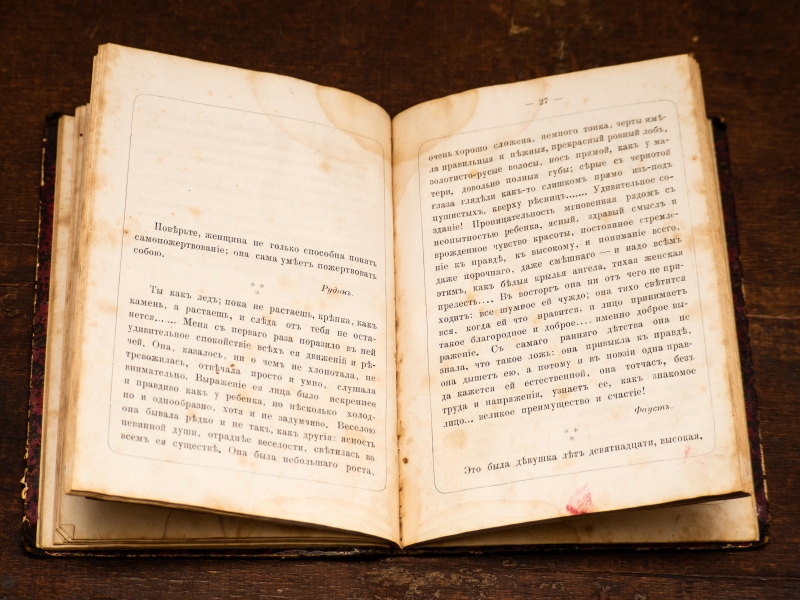 Повѣрьте, женщина не только способна понять
самопожертвованіе; она сама умѣетъ пожертвовать
собою.
Рудинъ.
Ты какъ ледъ; пока не растаешь, крѣпка, какъ
камень, а растаешь, и слѣда отъ тебя не оста-
нется....... Меня съ перваго раза поразило въ ней
удивительное спокойствіе всѣхъ ея движеній и рѣ-
чей. Она, казалось, ни о чемъ не хлопотала, не
тревожилась, отвѣчала просто и умно, слушала
внимательно. Выраженіе ея лица было искреннее
и правдиво какъ у ребенка, но нѣсколько холод-
но и однообразно, хотя и не задумчиво. Веселою
она бывала рѣдко и не такъ, какъ другія: ясность
невинной души, отраднѣе веселости, свѣтилась во
всемъ ея существѣ. Она была небольшаго роста,
— 27 —
очень хорошо сложена, немного тонка, черты имѣ-
ла правильныя и нѣжныя, прекрасный ровный лобъ,
золотисто-русые волосы, носъ прямой, какъ у ма-
тери, довольно полныя губы; сѣрые съ чернотой
глаза глядѣли какъ-то слишкомъ прямо изъ-подъ
пушистыхъ, кверху рѣсницъ....... Удивительное со-
зданіе! Проницательность мгновенная рядомъ съ
неопытностью ребенка, ясный, здравый смыслъ и
врожденное чувство красоты, постоянное стремле-
ніе къ правдѣ, къ высокому, и пониманіе всего,
даже порочнаго, даже смѣшнаго — и надо всѣмъ
этимъ, какъ бѣлыя крылья ангела, тихая женская
прелесть.... Въ восторгъ она ни отъ чего не при-
ходитъ: все шумное ей чуждо; она тихо свѣтится
вся, когда ей что нравится, и лицо принимаетъ
такое благородное и доброе.... именно доброе вы-
раженіе. Съ самаго ранняго дѣтства она не
знала, что такое ложь: она привыкла къ правдѣ,
она дышетъ ею, а потому и въ поэзіи одна прав-
да кажется ей естественной, она тотчасъ, безъ
труда и напряженія, узнаетъ ее, какъ знакомое
лицо... великое преимущество и счастіе!
Фаустъ.
Это была дѣвушка лѣтъ девятнадцати, высокая,